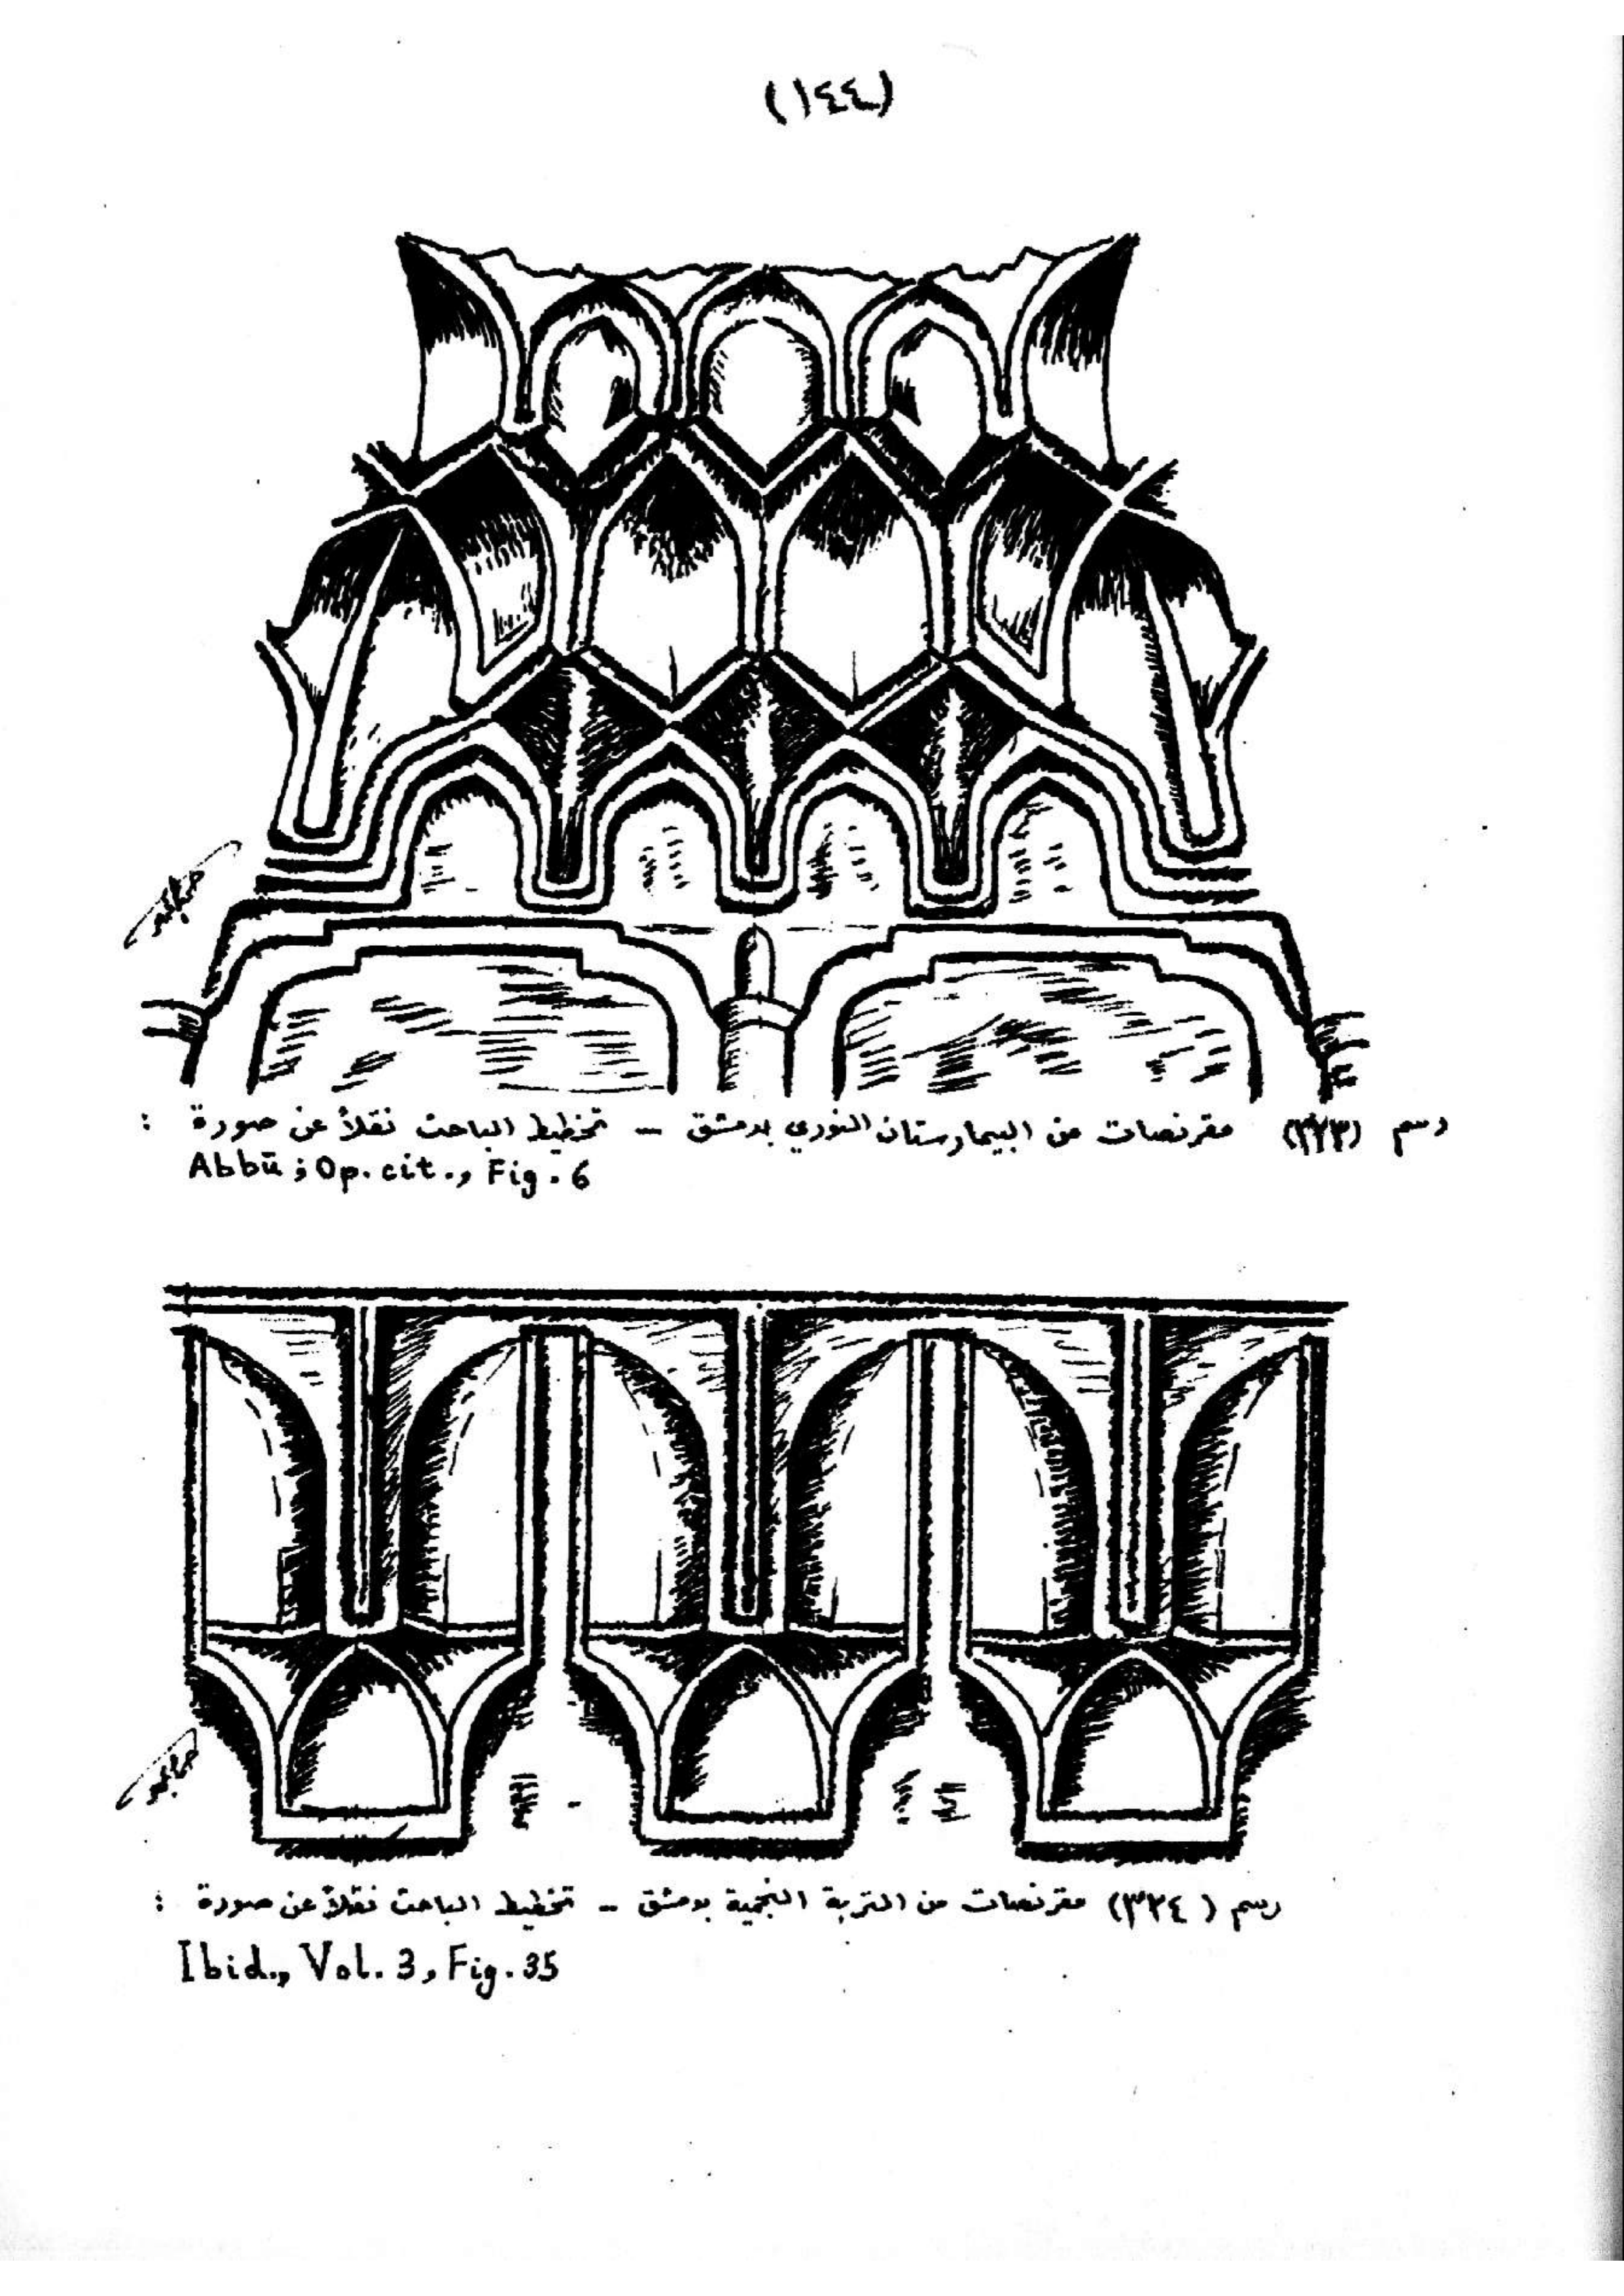 (١٤٤)
رسم (٣٢٣) مقرنصات من البيمارستان النوري بدمشق - تخطيط الباحث نقلاً عن صورة :
Abbū ; Op. cit., Fig. 6
رسم (٣٢٤) مقرنصات من التربة النجمية بدمشق - تخطيط الباحث نقلاً عن صورة :
Ibid., Vol. 3, Fig. 35